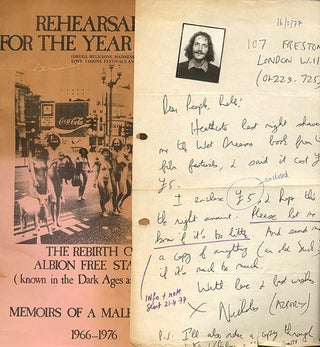 REHEARSAL
FOR THE YEAR
(DRUGS, RELIGIONS, MADNESS
LOVE, VISIONS, FESTIVALS AN
Coca-Cola
THE REBIRTH O
ALBION FREE STA
( known in the Dark Ages as
MEMOIRS OF A MALE
1966-1976
107 FRESTON
LONDON W.11
(01-229-725
Dear People, Hello!
Heathcote last night showed
me the Wet Dreams book from
film festivals, & said it cost
£5.
I enclose £5, & hope this
the right amount. Please let me
know if it's too little. And send me
a copy of anything (an old Suck)
if it's too much
With love & best wishes
X Nicholas (ALBERY)
Info + note
sent 21.4.77
P.S. I'll also order a copy through